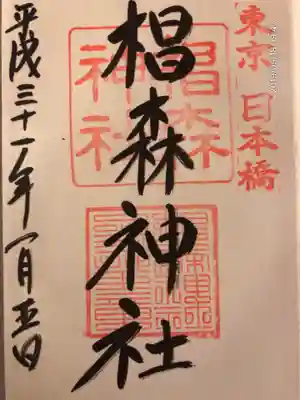 東京 日本橋
椙森神社
椙森
神社
平成三十一年一月五日